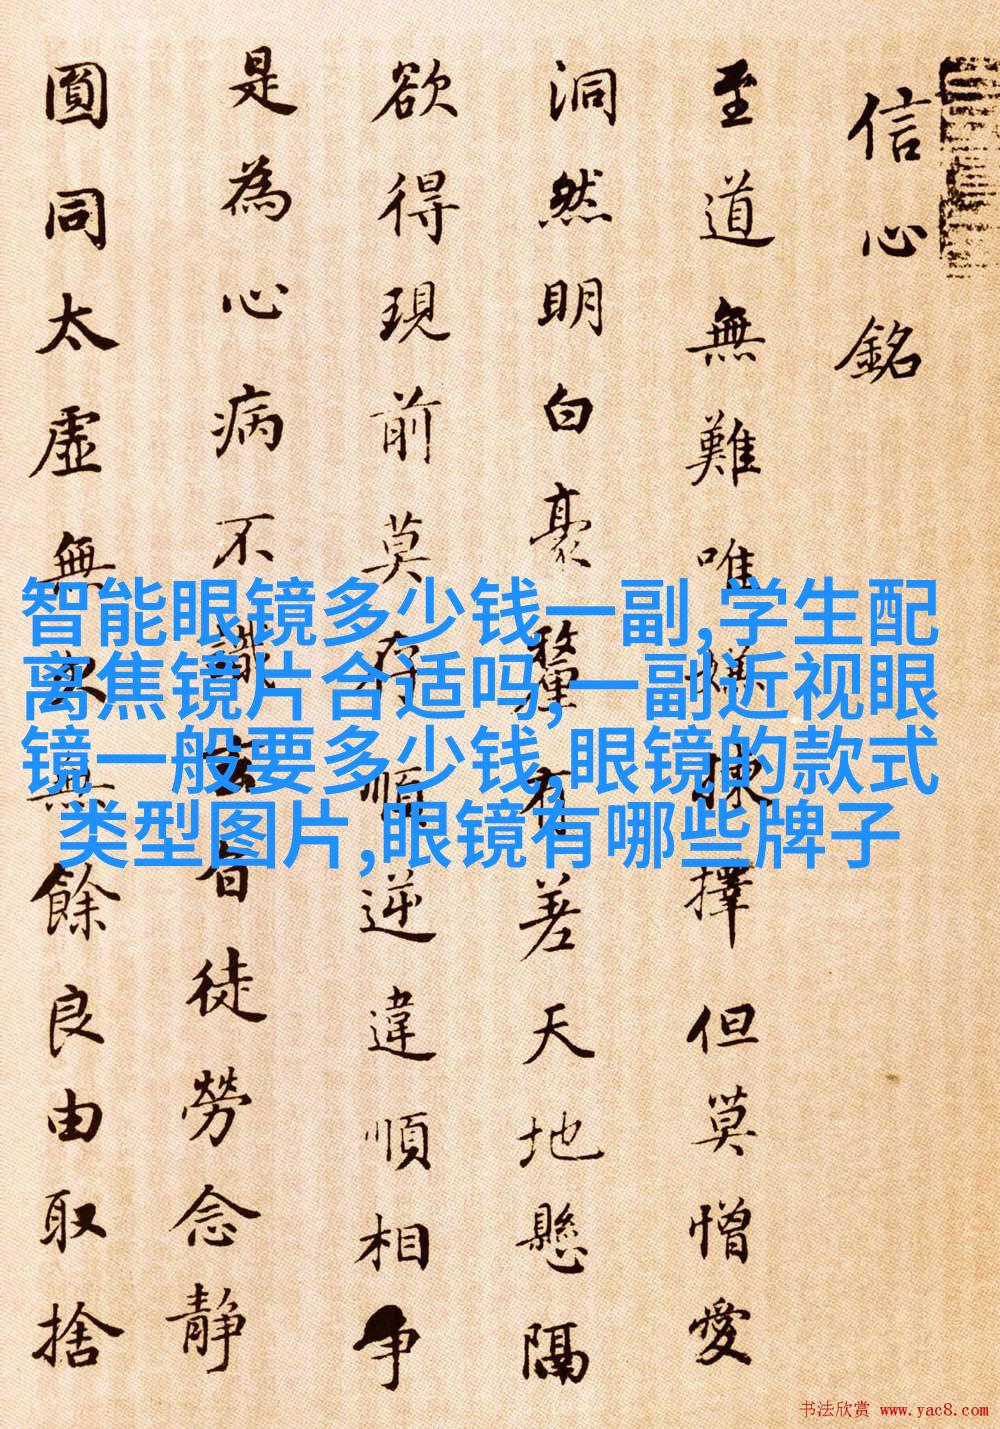 信心銘
至道無難唯嫌揀擇但莫憎愛
洞然明白毫釐有差天地懸隔
欲得現前莫存順逆違順相爭
是為心病不識玄旨徒勞念静
圓同太虛無欠無餘良由取捨
智能眼镜多少钱一副,学生配
离焦镜片合适吗,一副近视眼
镜一般要多少钱,眼镜的款式
类型图片,眼镜有哪些牌子
书法欣赏 www.yac8.com